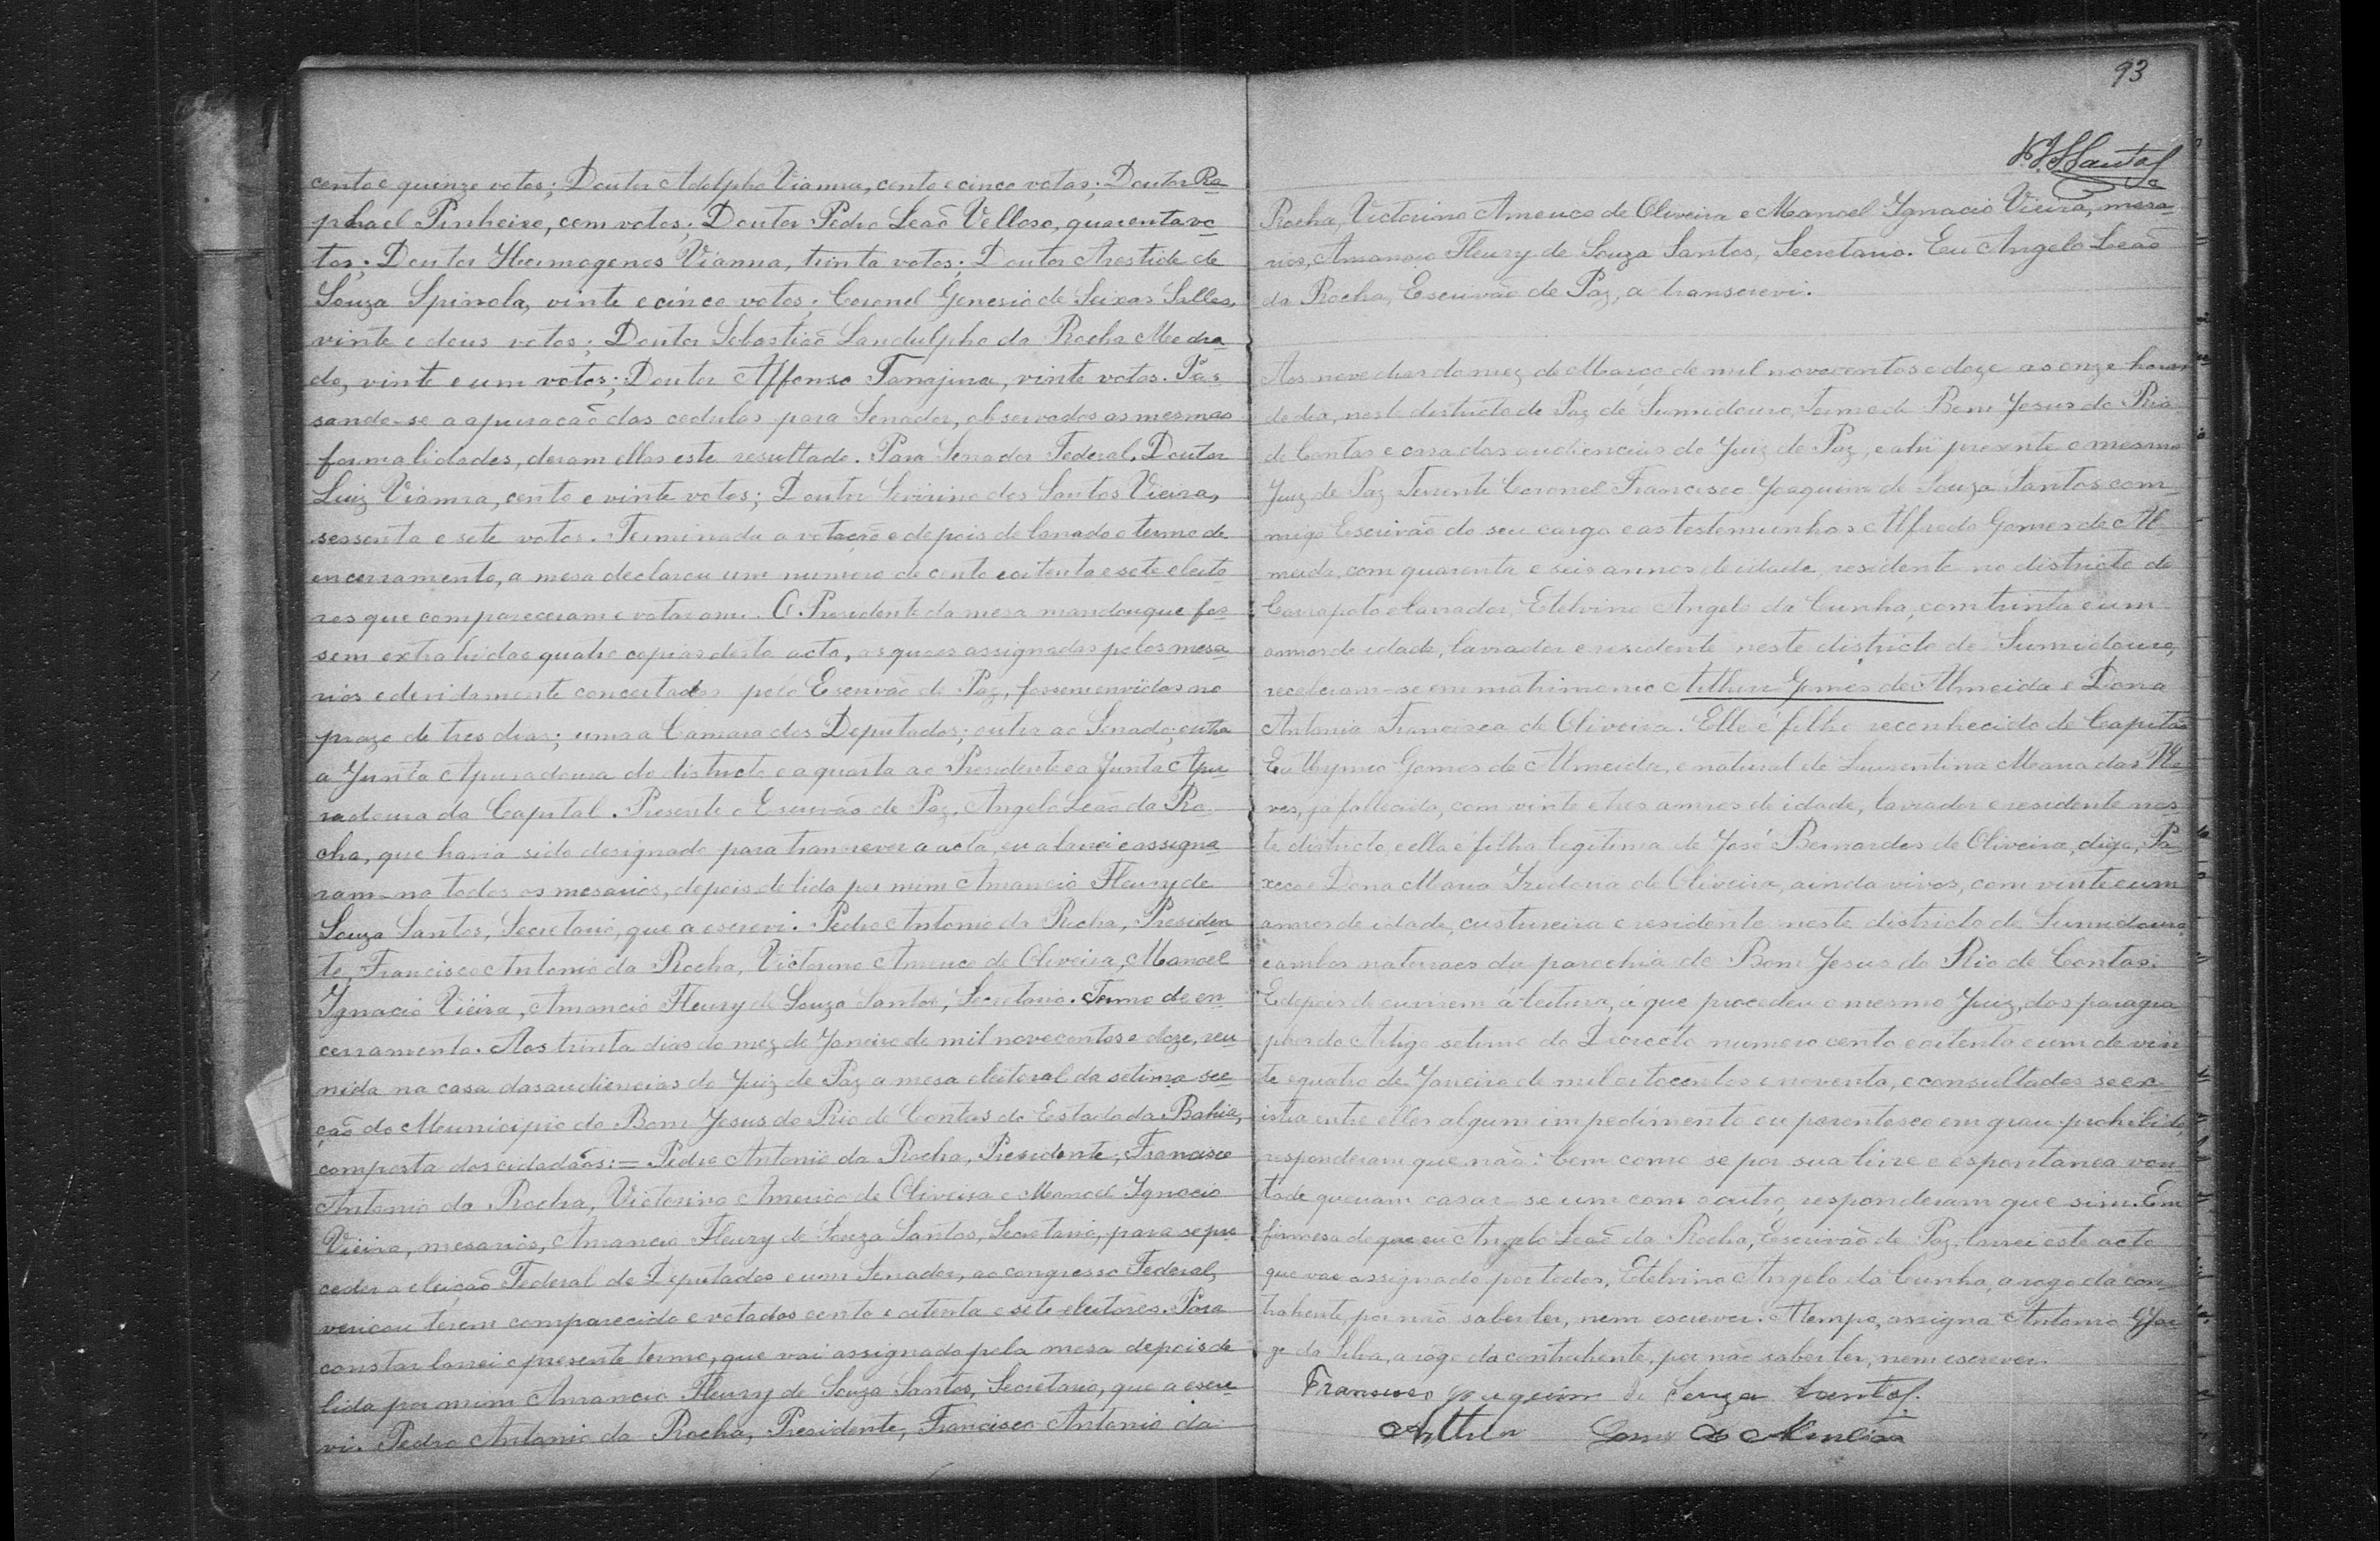 cento e quinze votos; Doutor Adolpho Vianna, cento e cinco votos; Doutor Ra-
phael Pinheiro, cem votos; Doutor Pedro Leão Velloso, quarenta vo-
tos; Doutor Hermogenes Vianna, trinta votos; Doutor Arestide de
Souza Spinola, vinte e cinco votos; Coronel Genesio de Seixas Salles,
vinte e dous votos; Doutor Sebastião Landulpho da Rocha Medra-
do, vinte e um votos; Doutor Affonso Tanajura, vinte votos. Pas-
sando-se a apuração das cedulas para Senador, observados as mesmas
formalidades, deram ellas este resultado. Para Senador Federal, Doutor
Luiz Vianna, cento e vinte votos; Doutor Severino dos Santos Vieira,
sessenta e sete votos. Terminada a votação e depois de lavrado o termo de
encerramento, a mesa declarou um numero de cento e oitenta e sete eleito-
res que compareceram e votaram. O Presidente da mesa mandou que fos-
sem extrahidas quatro copias desta acta, as quaes assignadas pelos mesa-
rios e devidamente concertadas pelo Escrivão de Paz, fossem enviadas no
prazo de tres dias; uma a Camara dos Deputados; outra ao Senado; outra
a Junta Apuradoura do districto e a quarta ao Presidente e a Junta Apu-
radoura da Capital. Presente o Escrivão de Paz, Angelo Leão da Ro-
cha, que havia sido designado para transcrever a acta, eu a lavrei e assigna-
ram-na todos os mesarios, depois de lida por mim Amancio Fleury de
Souza Santos, Secretario, que a escrevi. Pedro Antonio da Rocha, Presiden-
te, Francisco Antonio da Rocha, Victorino Americo de Oliveira, Manoel
Ignacio Vieira, Amancio Fleury de Souza Santos, Secretario. Termo de en-
cerramento. Aos trinta dias do mez de Janeiro de mil novecentos e doze, reu-
nida na casa das audiencias do Juiz de Paz a mesa eleitoral da setima sec-
ção do Municipio do Bom Jesus do Rio de Contas do Estado da Bahia,
composta dos cidadãos:= Pedro Antonio da Rocha, Presidente, Francisco
Antonio da Rocha, Victorino Americo de Oliveira e Manoel Ignacio
Vieira, mesarios, Amancio Fleury de Souza Santos, Secretario, para se pro-
ceder a eleição Federal de Deputados e um Senador, ao congresso Federal,
vericou terem comparecido e votados cento e oitenta e sete eleitores. Para
constar lavrei o presente termo, que vai assignado pela mesa depois de
lida por mim Amancio Fleury de Souza Santos, Secretario, que a escre-
vi. Pedro Antonio da Rocha, Presidente, Francisco Antonio da
93
Rocha, Victorino Americo de Oliveira e Manoel Ignacio Vieira, mesa-
rios, Amancio Fleury de Souza Santos, Secretario. Eu Angelo Leão
da Rocha, Escrivão de Paz, a transcrevi.
Aos nove dias do mez de Março de mil novecentos e doze as onze horas
do dia, neste districto de Paz de Sumidouro, Termo de Bom Jesus do Rio
de Contas e casa das audiencias do Juiz de Paz, e ahi presente o mesmo
Juiz de Paz Tenente Coronel Francisco Joaquim de Souza Santos com-
migo Escrivão do seu cargo e as testemunhas Alfredo Gomes de Al-
meida, com quarenta e seis annos de idade, residente no districto do
Carrapato e lavrador, Etelvino Angelo da Cunha, com trinta e um
annos de idade, lavrador e residente neste districto de Sumidouro,
receberam-se em matrimonio Arthur Gomes de Almeida e Dona
Antonia Francisca de Oliveira. Elle é filho reconhecido de Capitão
Euthymio Gomes de Almeida, e natural de Laurentina Maria das Ne-
ves, já fallecida, com vinte e tres annos de idade, lavrador e residente nes-
te districto, e ella é filha legitima de José Bernardes de Oliveira, digo, Pa-
xeco e Dona Maria Izidoria de Oliveira, ainda vivos, com vinte e um
annos de idade, custureira e residente neste districto de Sumidouro,
e ambos naturaes da parochia de Bom Jesus do Rio de Contas.
E depois de ouvirem á leitura, á que procedeu o mesmo Juiz, dos paragra-
phos do Artigo setimo do Decreto numero cento e oitenta e um de vin-
te e quatro de Janeiro de mil oitocentos e noventa, e consultados se ex-
istia entre elles algum impedimento ou parentesco em grau prohibido,
responderam que não: bem como se por sua livre e espontanea von-
tade queriam casar-se um com o outro, responderam que sim. Em
firmesa do que eu Angelo Leão da Rocha, Escrivão de Paz, lavrei este acto
que vae assignado por todos, Etelvino Angelo da Cunha, a rogo da con-
trahente, por não saber ler, nem escrever. A tempo, assigna Antonio Jor-
ge da Silva, a rogo da contrahente, por não saber ler, nem escrever.
Francisco Joaquim de Souza Santos.
Arthur Gomes de Almeida